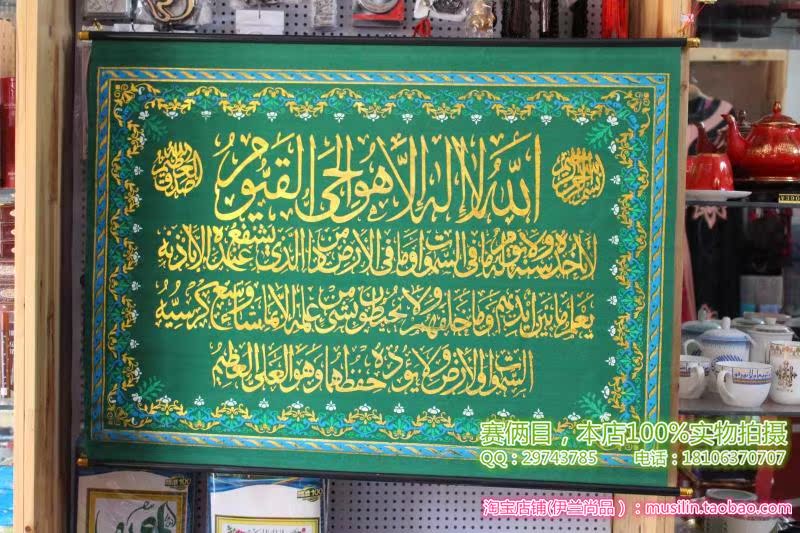 الله لا إله إلا هو الحي القيوم
لا تأخذه سنة ولا نوم له ما في السموات وما في الأرض من ذا الذي يشفع عنده إلا بإذنه
يعلم ما بين أيديهم وما خلفهم ولا يحيطون بشيء من علمه إلا بما شاء وسع كرسيه
السموات والأرض ولا يؤده حفظهما وهو العلي العظيم
赛俩目，本店100%实物拍摄
QQ：29743785 电话：18106370707
淘宝店铺(伊兰尚品)：musilin.taobao.com